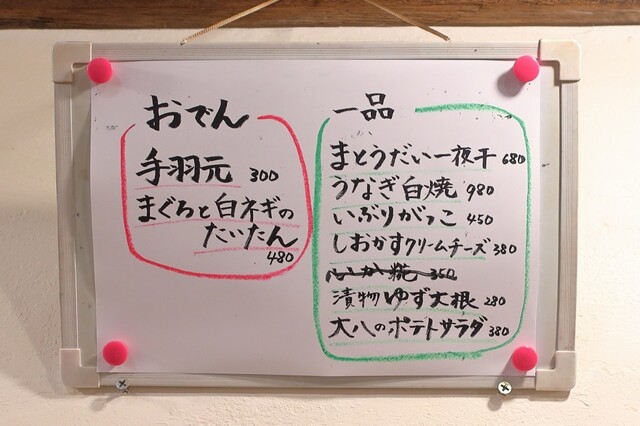 おでん
手羽元 300
まぐろと白ネギの
たいたん
480
一品
まとうだい一夜干 680
うなぎ白焼 980
いぶりがっこ 450
しおかすクリームチーズ 380
いか糀 350
漬物ゆず大根 280
大八のポテトサラダ 380